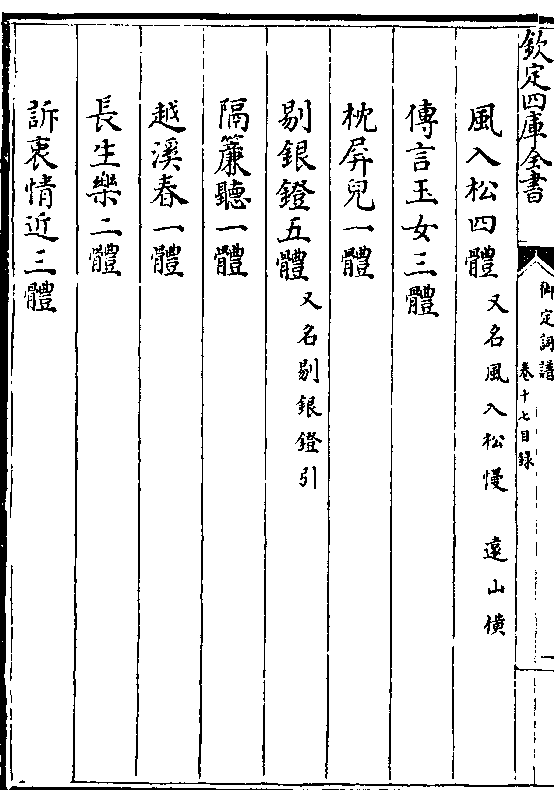 欽定四庫全書
御定詞譜
卷十七目録
風入松四體 又名風入松慢 遠山橫
傳言玉女三體
枕屏兒一體
剔銀鐙五體 又名剔銀鐙引
隔簾聽一體
越溪春一體
長生樂二體
訴衷情近三體